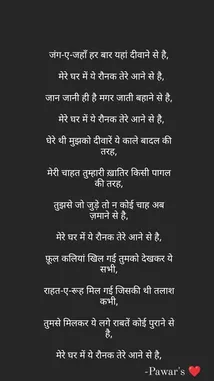 जंग-ए-जहाँ हर बार यहां दीवाने से है,
मेरे घर में ये रौनक तेरे आने से है,
जान जानी ही है मगर जाती बहाने से है,
मेरे घर में ये रौनक तेरे आने से है,
घेरे थी मुझको दीवारें ये काले बादल की
तरह,
मेरी चाहत तुम्हारी ख़ातिर किसी पागल
की तरह,
तुझसे जो जुड़े तो न कोई चाह अब
ज़माने से है,
मेरे घर में ये रौनक तेरे आने से है,
फ़ूल कलियां खिल गई तुमको देखकर ये
सभी,
राहत-ए-रूह मिल गई जिसकी थी तलाश
कभी,
तुमसे मिलकर ये लगे राबतें कोई पुराने से
है,
मेरे घर में ये रौनक तेरे आने से है,
-Pawar's ❤️